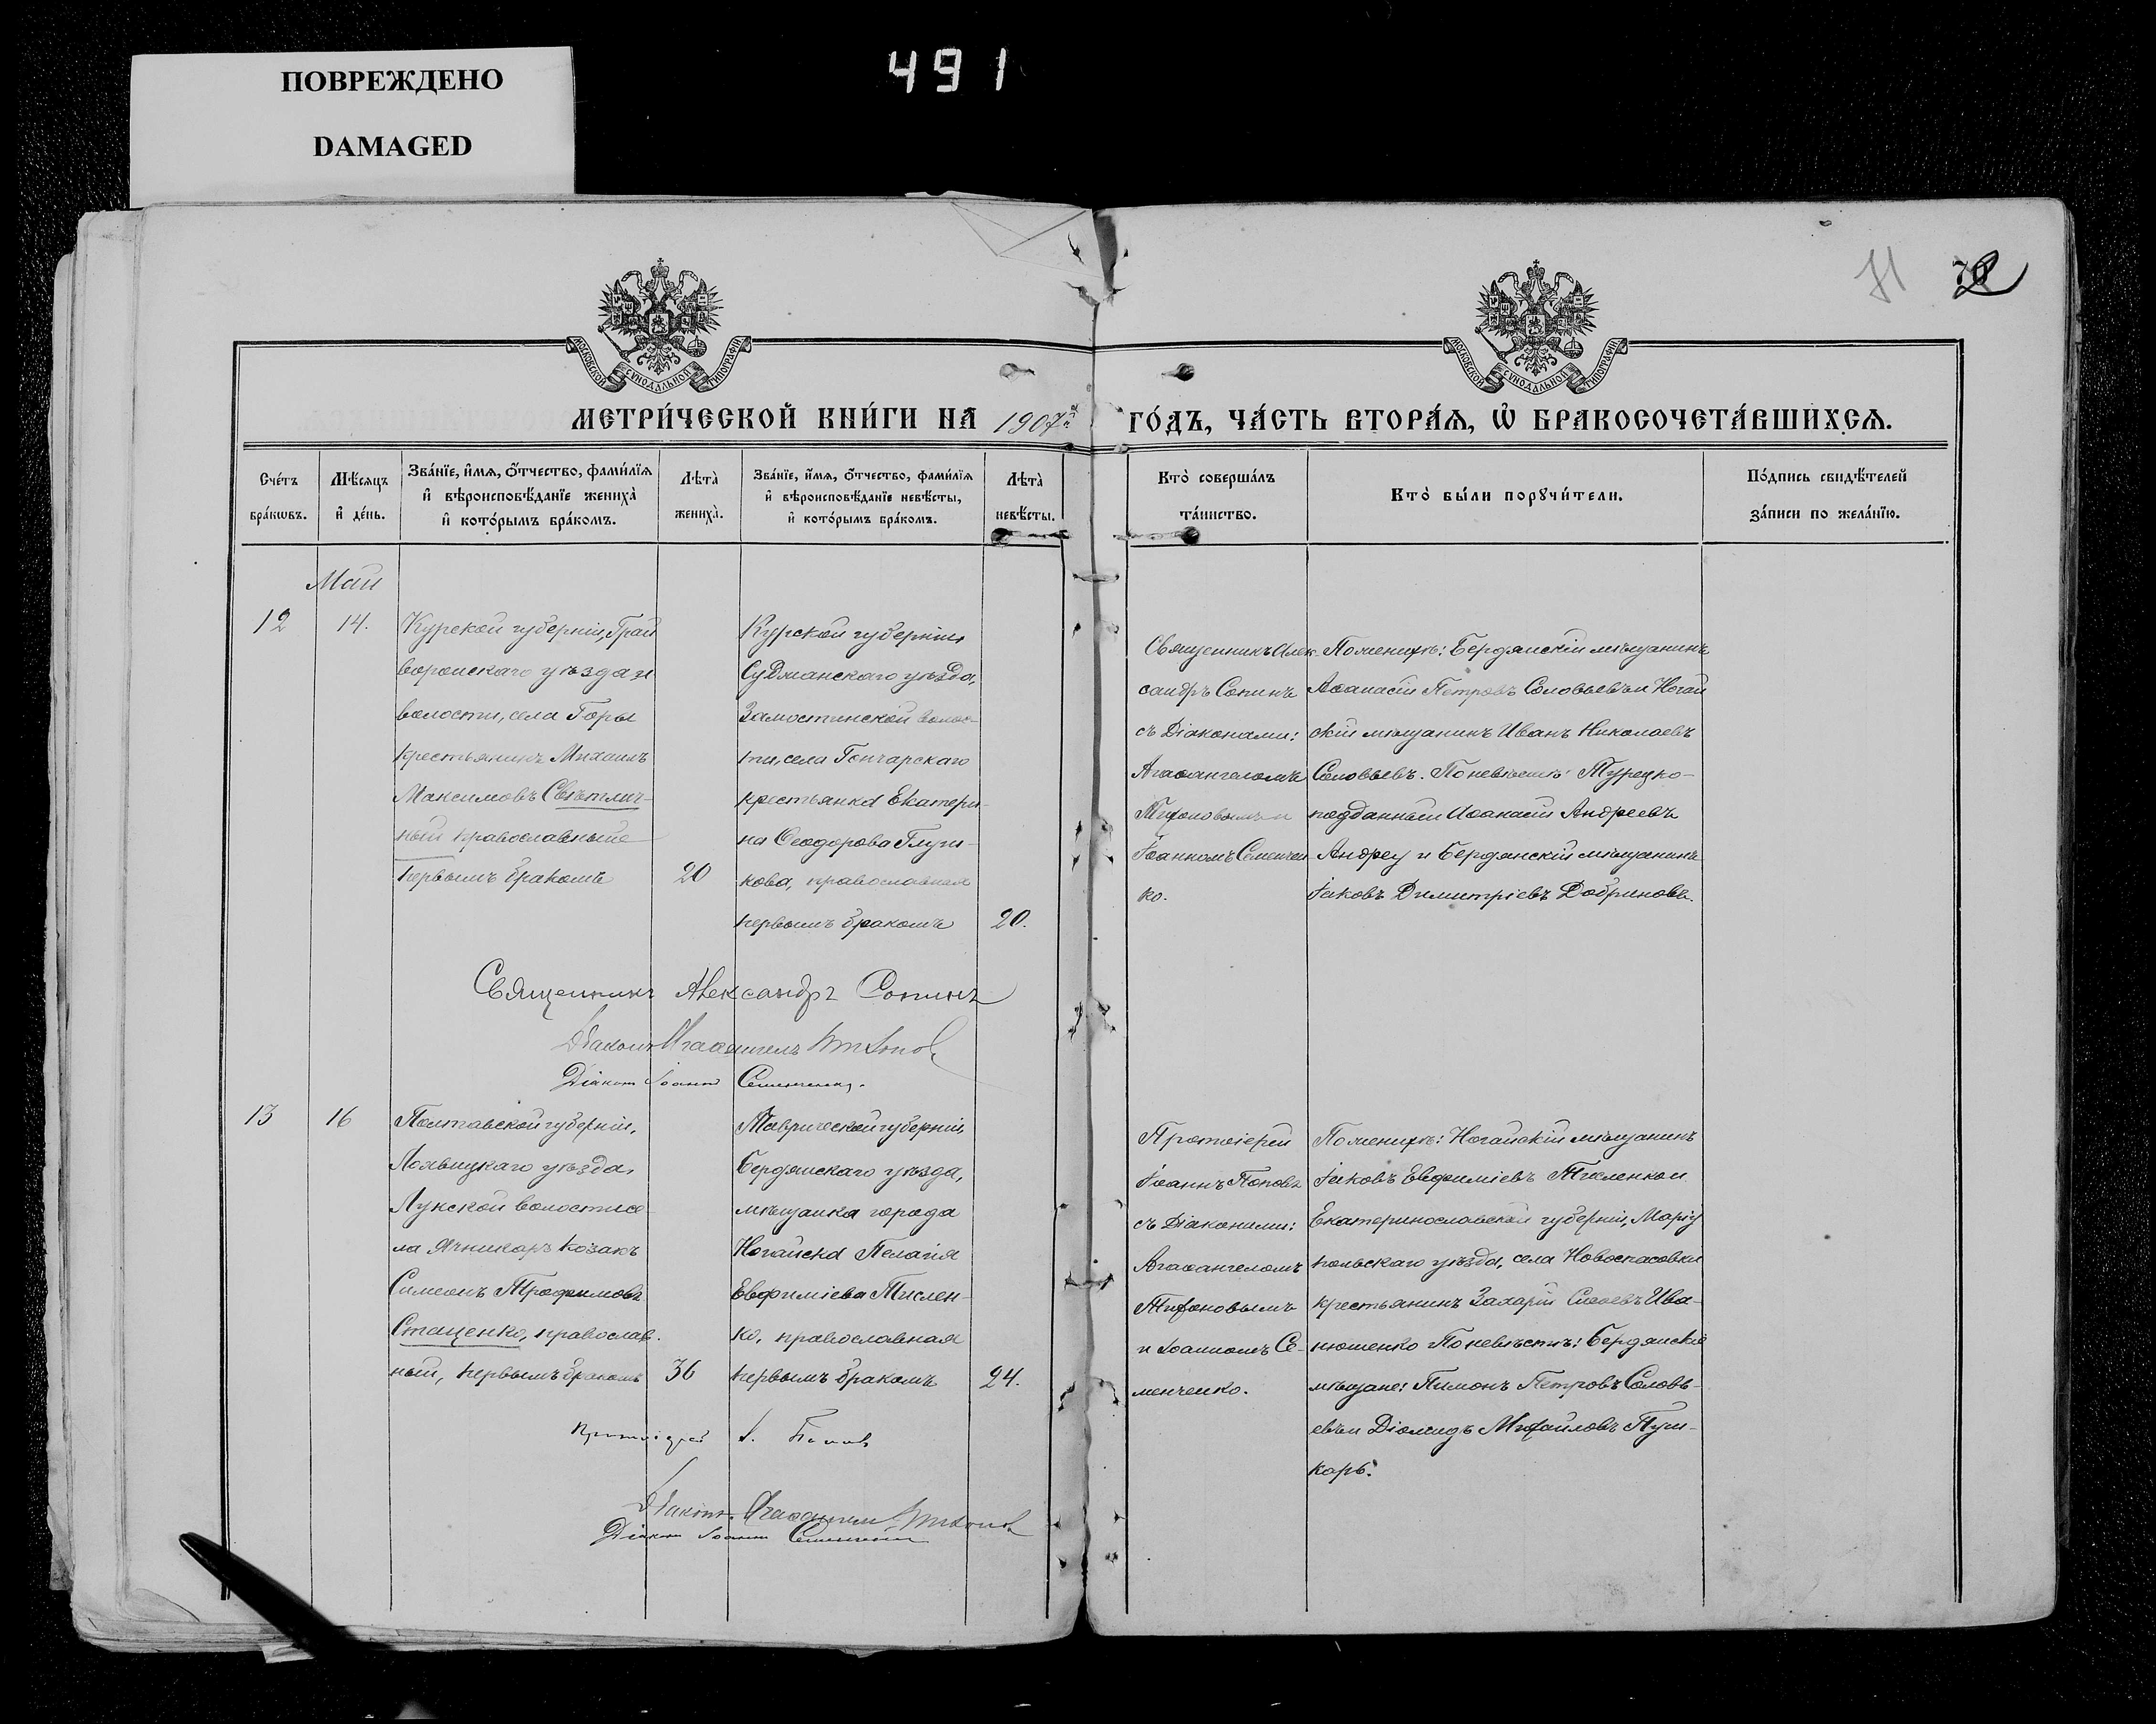 ПОВРЕЖДЕНО
DAMAGED
491
71
72
МОСКОВСКОЙ СУНОДАЛЬНОЙ ТИПОГРАФІИ
МОСКОВСКОЙ СУНОДАЛЬНОЙ ТИПОГРАФІИ
МЕТРИ́ЧЕСКОЙ КНИ́ГИ НА 1907й
ГО́ДЪ, ЧА́СТЬ ВТОРА́Ѧ, Ѽ БРАКОСОЧЕТА́ВШИХСѦ.
Сче́тъ
бра́кѡвъ.
Мѣ́сяцъ
и҆ де́нь.
Зва́нїе, и҆́мѧ, ѻ҆́тчество, фами́лїѧ
и҆ вѣроисповѣ́данїе жениха̀
и҆ кото́рымъ бра́комъ.
Лѣта̀
жениха̀.
Зва́нїе, и҆́мѧ, ѻ҆́тчество, фами́лїѧ
и҆ вѣроисповѣ́данїе невѣ́сты,
и҆ кото́рымъ бра́комъ.
Лѣта̀
невѣ́сты.
Кто̀ соверша́лъ
та́инство.
Кто̀ бы́ли порꙋчи́тели.
По́дпись свидѣ́телей
за́писи по жела́нїю.
Май
12
14.
Курской губерніи, Грай
воронскаго уѣзда и
волости, села Горы
крестьянинъ Михаилъ
Максимовъ Свѣтлич-
ный православный
Первымъ бракомъ
20
Курской губерніи,
Суджанскаго уѣзда,
Замостинской волос-
ти, села Гончарскаго
крестьянка Екатери-
на Ѳеодорова Глуш-
кова, православная
первымъ бракомъ
20.
Священникъ Алек-
сандръ Сопинъ
съ Діаконами:
Агаѳангеломъ
Тифоновымъ и
Іоанномъ Семенчен
ко.
По женихѣ: Бердянскій мѣщанинъ
Аѳанасій Петровъ Соловьевъ и Ногай
скій мѣщанинъ Иванъ Николаевъ
Соловьевъ. По невѣстѣ: Турецко-
подданный Аѳанасій Андреевъ
Андреу и Бердянскій мѣщанинъ
Іаковъ Димитріевъ Добриновъ.
Священникъ Александръ Сопинъ
Діаконъ Агаѳангелъ
Діаконъ Іоаннъ Семенченко.
13
16
Полтавской губерніи,
Лохвицкаго уѣзда,
Лукской волости се
ла Ячникаръ козакъ
Симеонъ Трофимовъ
Стаценко, православ
ный, первымъ бракомъ
36
Таврической губерніи,
Бердянскаго уѣзда,
мѣщанка города
Ногайска Пелагія
Евфиміева Тислен-
ко, православная
первымъ бракомъ
24.
Протоіерей
Іоаннъ Поповъ
съ Діаконами:
Агаѳангеломъ
Тифоновымъ
и Іоанномъ Се-
менченко.
По женихѣ: Ногайскій мѣщанинъ
Іаковъ Евфиміевъ Тисленко и
Екатеринославской губерніи, Маріу
польскаго уѣзда, села Новоспасовки
крестьянинъ Захарій Ива-
нюшенко По невѣстѣ: Бердянскіе
мѣщане: Пимонъ Петровъ Соловь-
евъ и Діомидъ Михайловъ Пуш-
карь.
Протоіерей І. Поповъ
Діаконъ Агаѳангелъ
Діаконъ Іоаннъ Семенченко